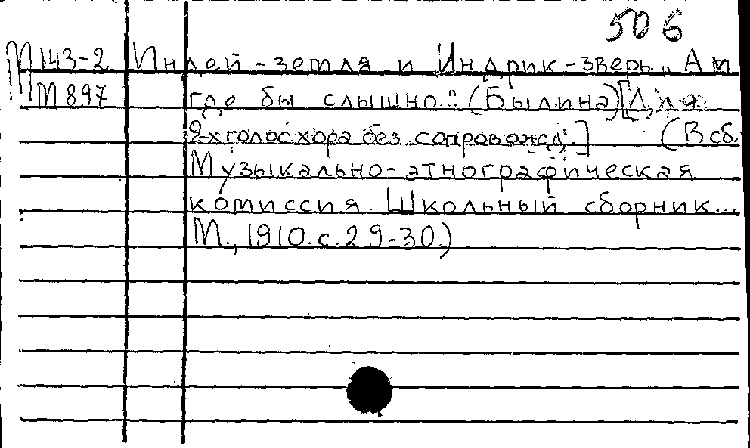 506
М143-2 Индей-земля и Индрик-зверь. „Ай
М897 где бы слышно." (Былина) [Для
2хголос хора без сопровожд.] (В сб.
Музыкально-этнографическая
комиссия. Школьный сборник...
М., 1910. с. 29-30.)